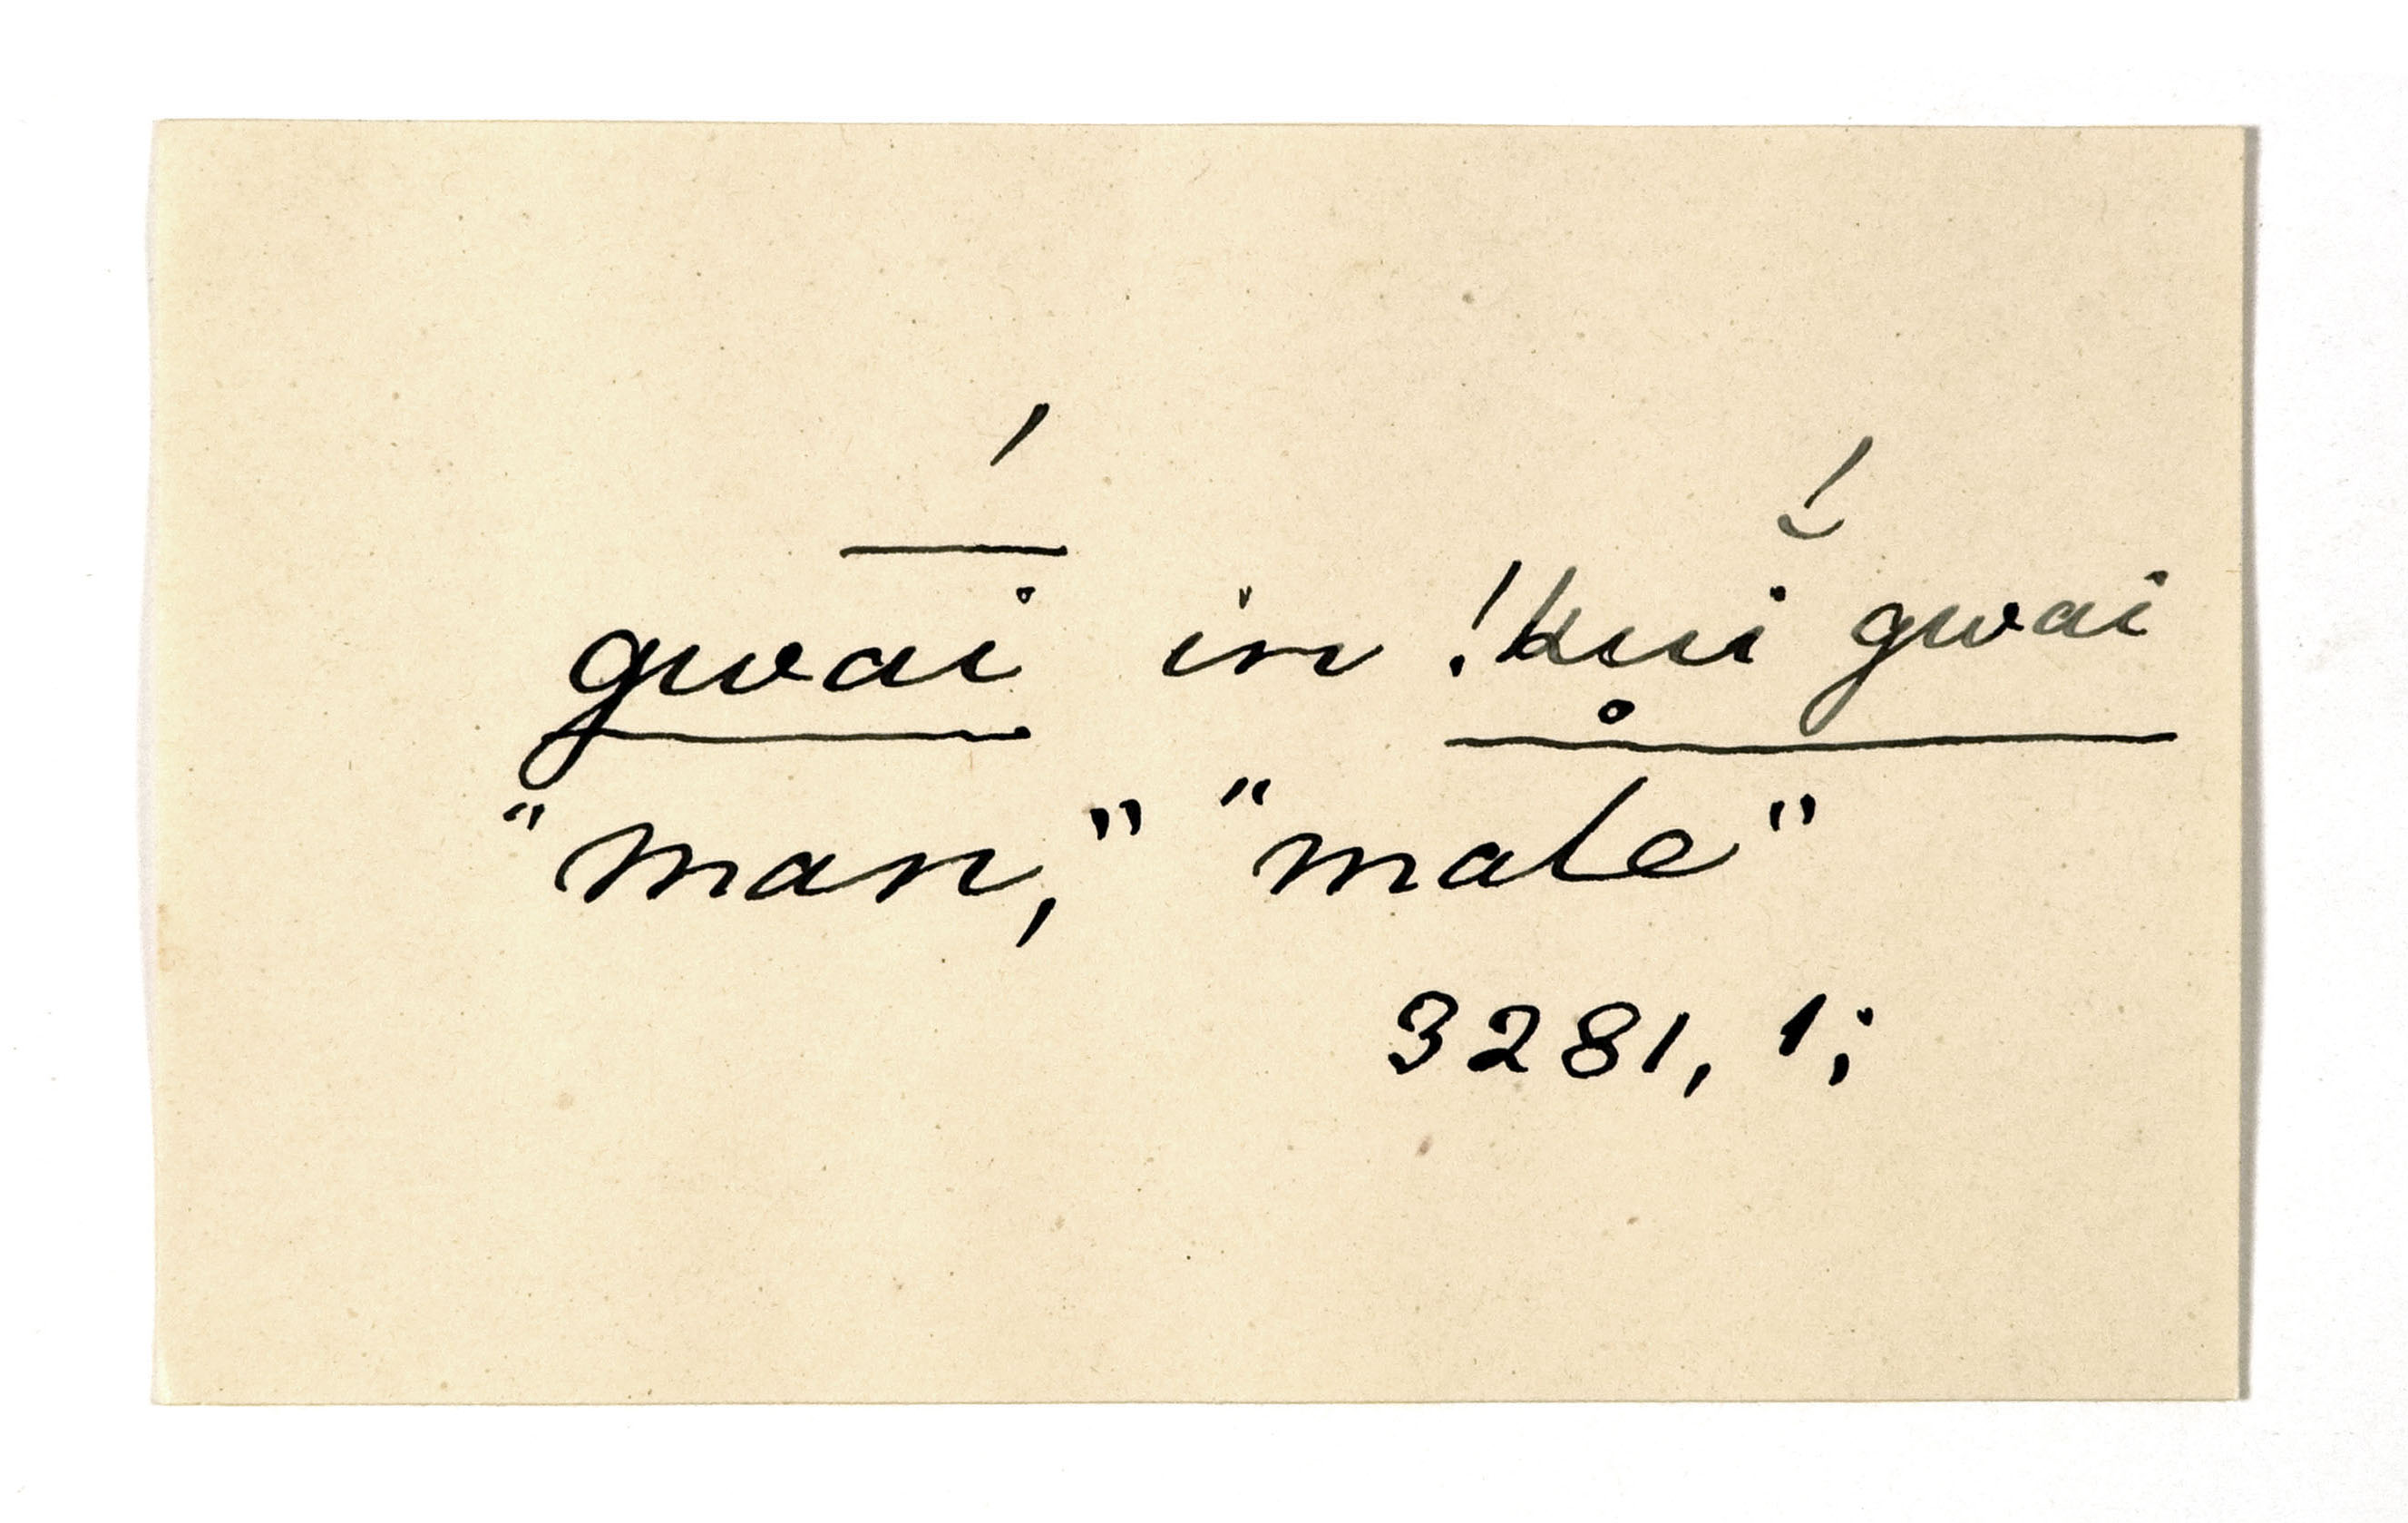 gwa͞í in !ku̥ĭ́ gwai
"man," "male"
3281, 1;